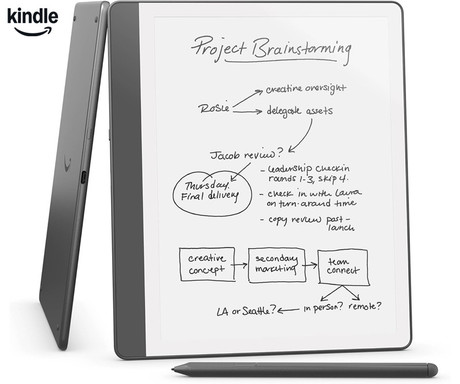 kindle
Project Brainstorming
creative oversight
Rosie
delegable assets
Jacob review?
- leadership checkin
rounds 1-3, skip 4.
Thursday:
Final delivery
- check in with Laura
on turn-around time
- copy review post-
launch
creative
concept
secondary
marketing
team
connect
LA or Seattle?
in person?
remote?